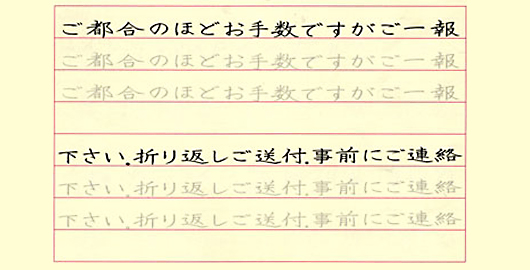 ご都合のほどお手数ですがご一報
ご都合のほどお手数ですがご一報
ご都合のほどお手数ですがご一報
下さい.折り返しご送付.事前にご連絡
下さい.折り返しご送付.事前にご連絡
下さい.折り返しご送付.事前にご連絡